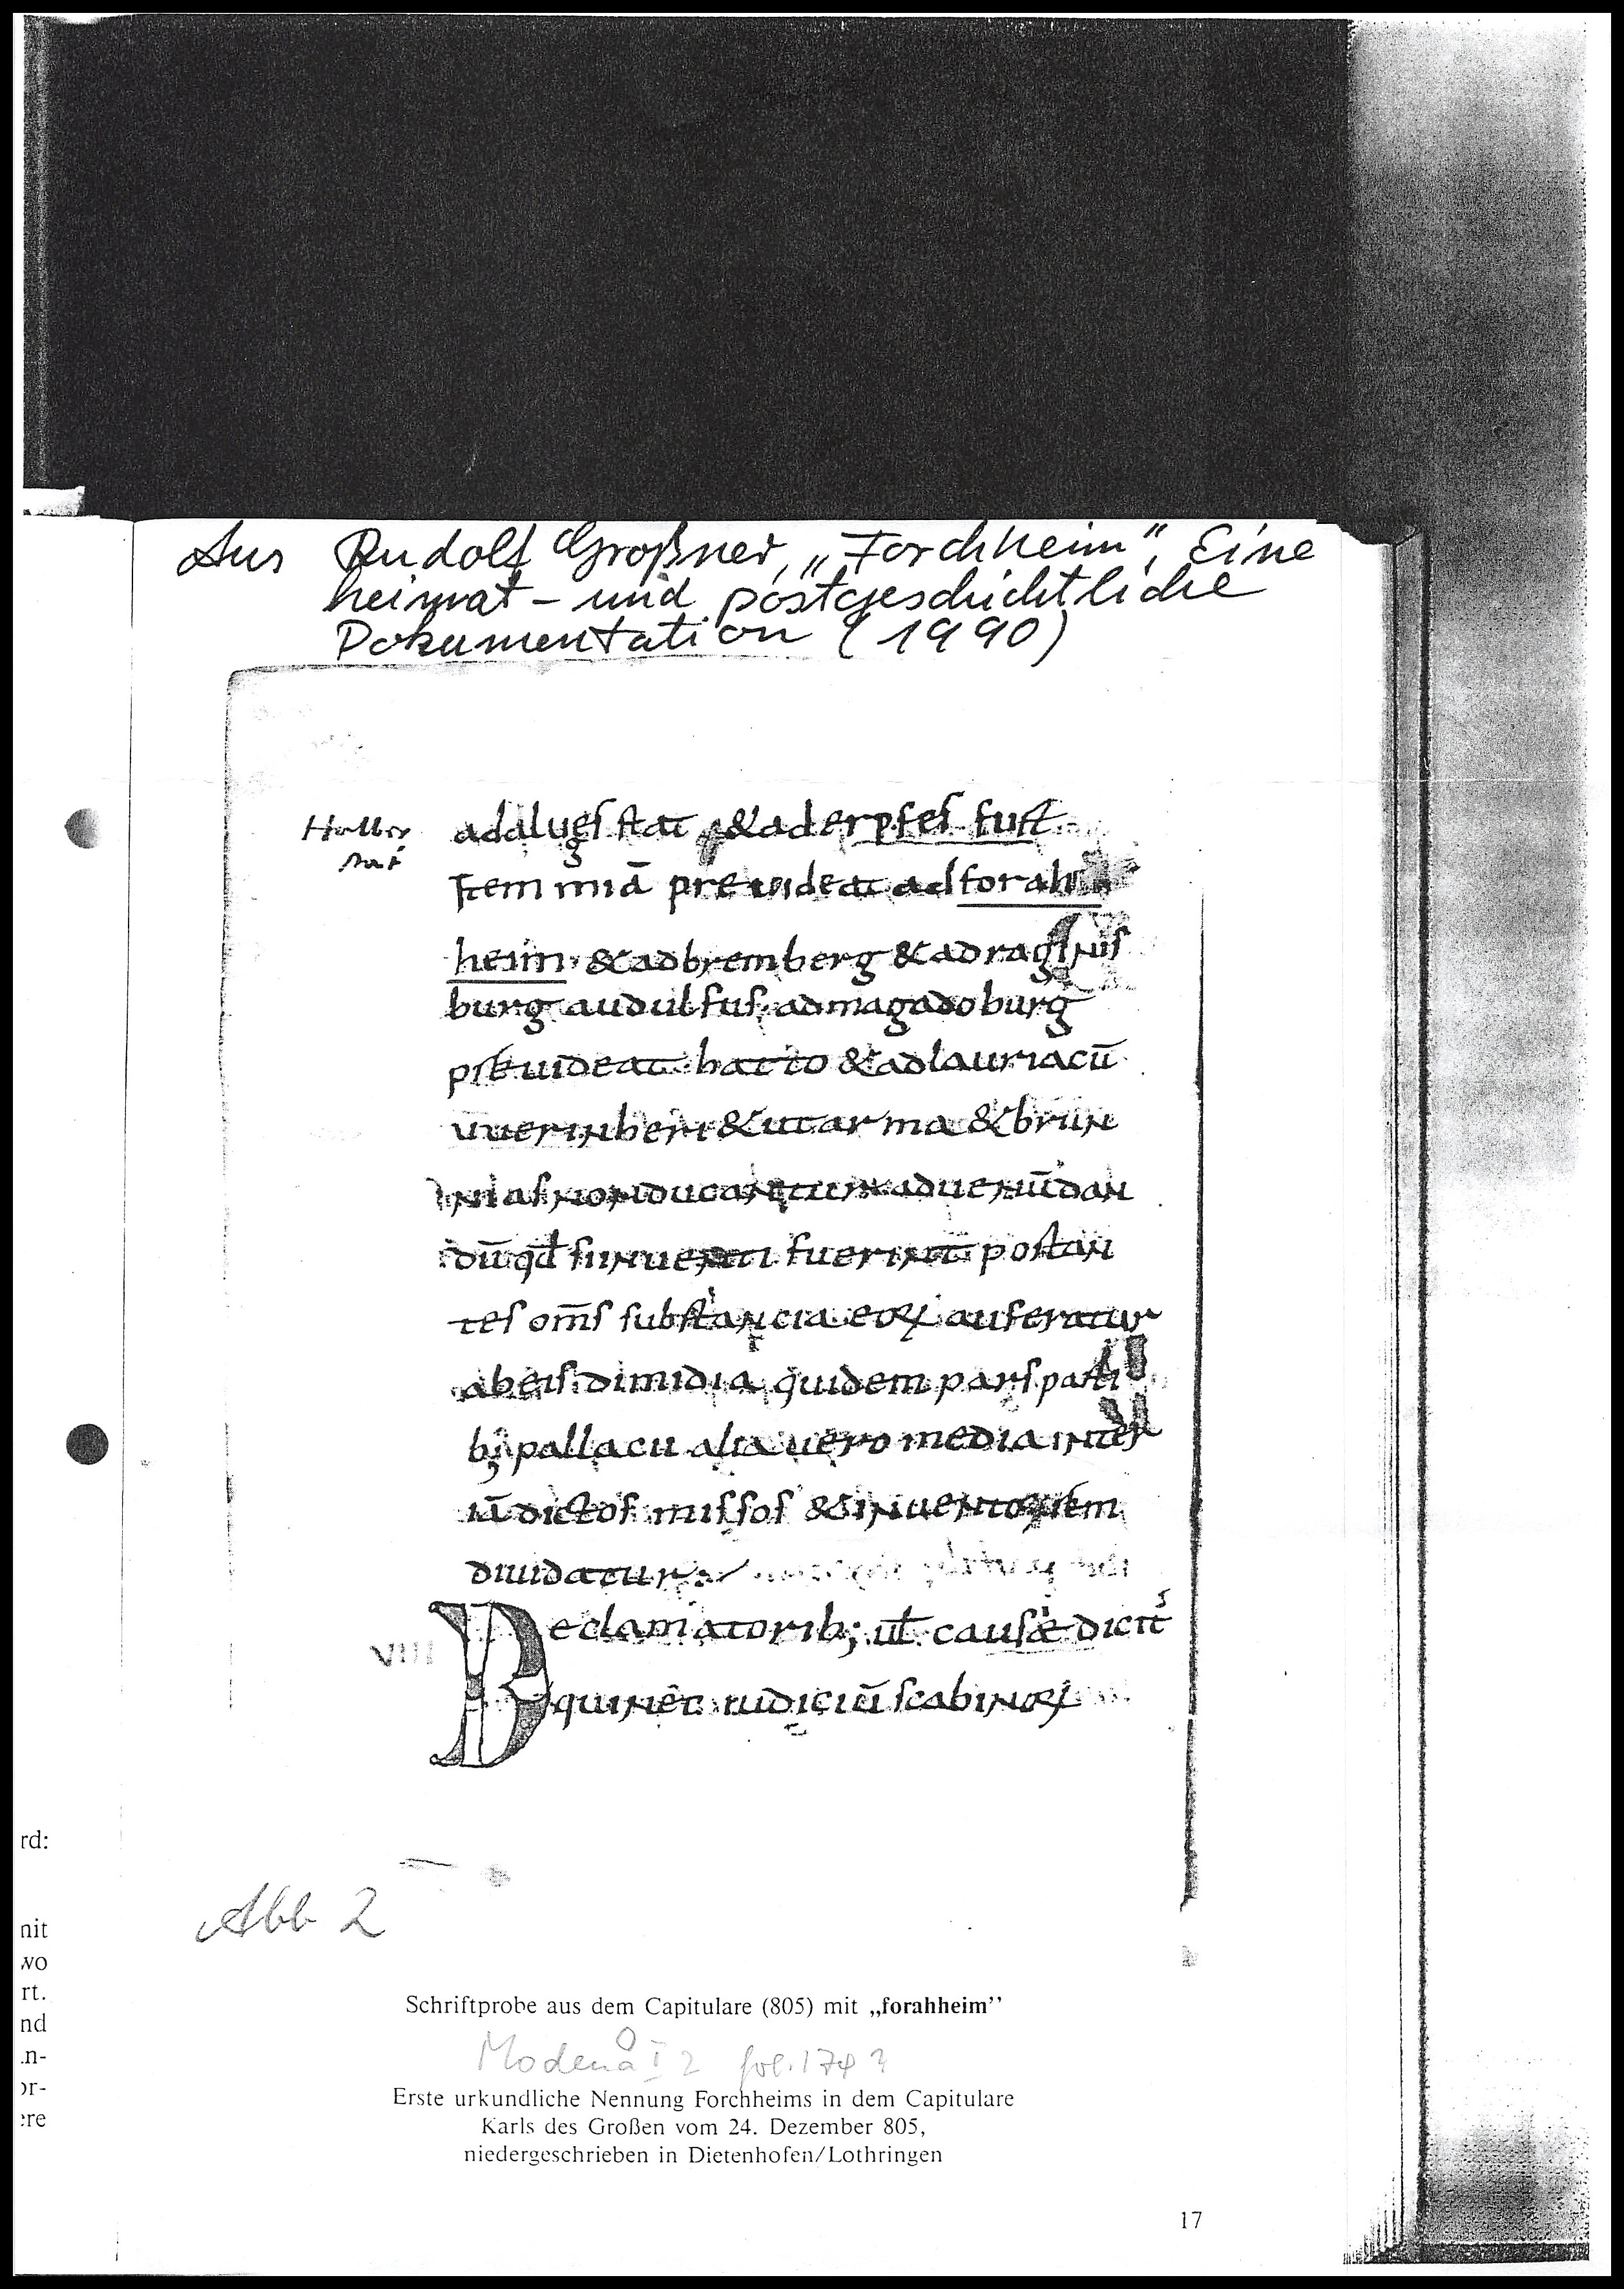 Aus Rudolf Großner, „Forchheim", Eine
heimat- und postgeschichtliche
Dokumentation (1990)
adalugſſtat &aderpſeſfurt
Item mia preuideat adforah
heim &adbremberg &adraginiſ
burg audulfuſ admagadoburg
preuideat hatto &adlauriacū
uuerinheri &utarma &brun
niaſnonducant aduenū̄dan
dū qđ ſiinuenti fuerint portan
teſ om̄ſ ſubſtancia eoꝝ auferatur
abeiſ dimidia quidem parſ parti
b; pallacii alia uero media inter
iādictoſ miſſoſ &inuentorem
diuidatur
VIII
Declamatorib; uł cauſedicit
quinec iudiciūſcabinoꝝ
rd:
nit
wo
rt.
nd
n-
or-
ere
Abb 2
Schriftprobe aus dem Capitulare (805) mit „forahheim''
Modena O I 2 fol. 174 ?
Erste urkundliche Nennung Forchheims in dem Capitulare
Karls des Großen vom 24. Dezember 805,
niedergeschrieben in Dietenhofen/Lothringen
17